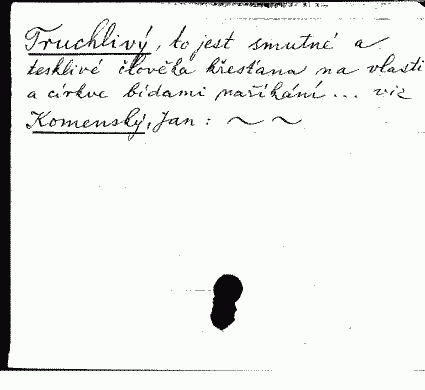 Truchlivý, to jest smutné a
teskli­vé člověka křesťana na vlasti
a církve bídami naříkání ... viz
Komenský, Jan : ~ ~